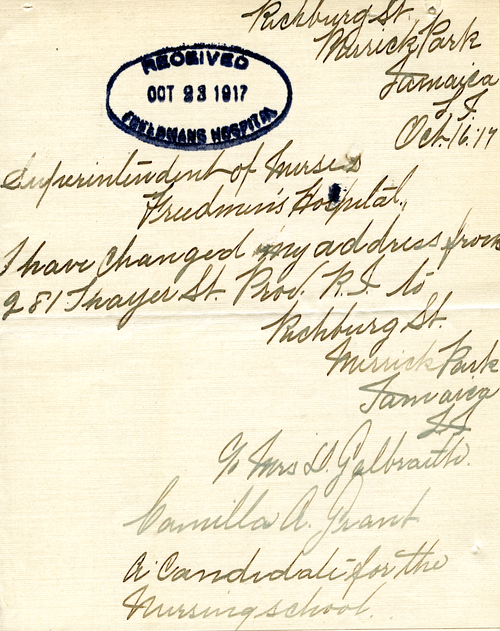 Richburg St.
Merrick Park
Jamaica
L. I.
Oct. 16. 17
RECEIVED
OCT 23 1917
FREEDMANS HOSPITAL
Superintendent of Nurses
Freedmen's Hospital,
I have changed my address from
281 Thayer St. Prov. R.I. to
Richburg St.
Merrick Park
Jamaica
L I
% Mrs D. Galbraith.
Camilla A. Grant
A Candidate for the
Nursing school.